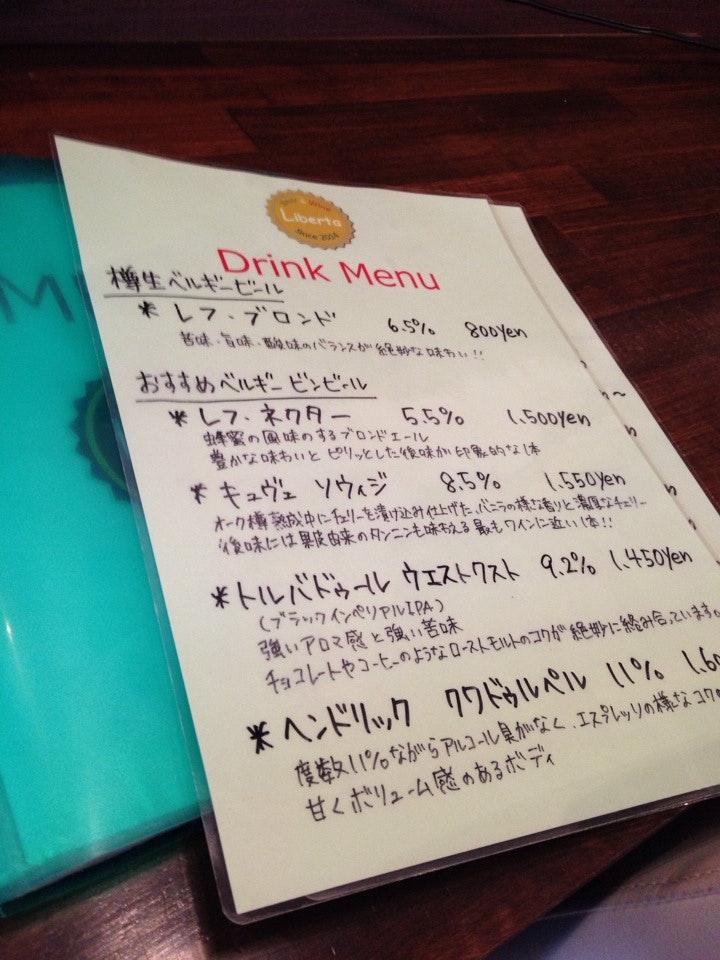 Beer & Wine
Liberta
since 2004
Drink Menu
樽生ベルギービール
* レフ・ブロンド 6.5% 800yen
苦味・旨味・酸味のバランスが絶妙な味わい!!
おすすめベルギービンビール
* レフ・ネクター 5.5% 1.500yen
蜂蜜の風味のするブロンドエール
豊かな味わいとピリッとした後味が印象的な1本
* キュヴェ ソウィジ 8.5% 1.550yen
オーク樽熟成中にチェリーを漬け込み仕上げた、バニラの様な香りと濃厚なチェリー
後味には果皮由来のタンニンも味わえる最もワインに近い1本!!
* トルバドゥール ウエストクスト 9.2% 1.450yen
(ブラックインペリアルIPA)
強いアロマ感と強い苦味
チョコレートやコーヒーのようなローストモルトのコクが絶妙に絡み合っています。
* ヘンドリック クワドゥルペル 11% 1.60
度数11%ながらアルコール臭がなく、エスプレッソの様なコクの
甘くボリューム感のあるボディ